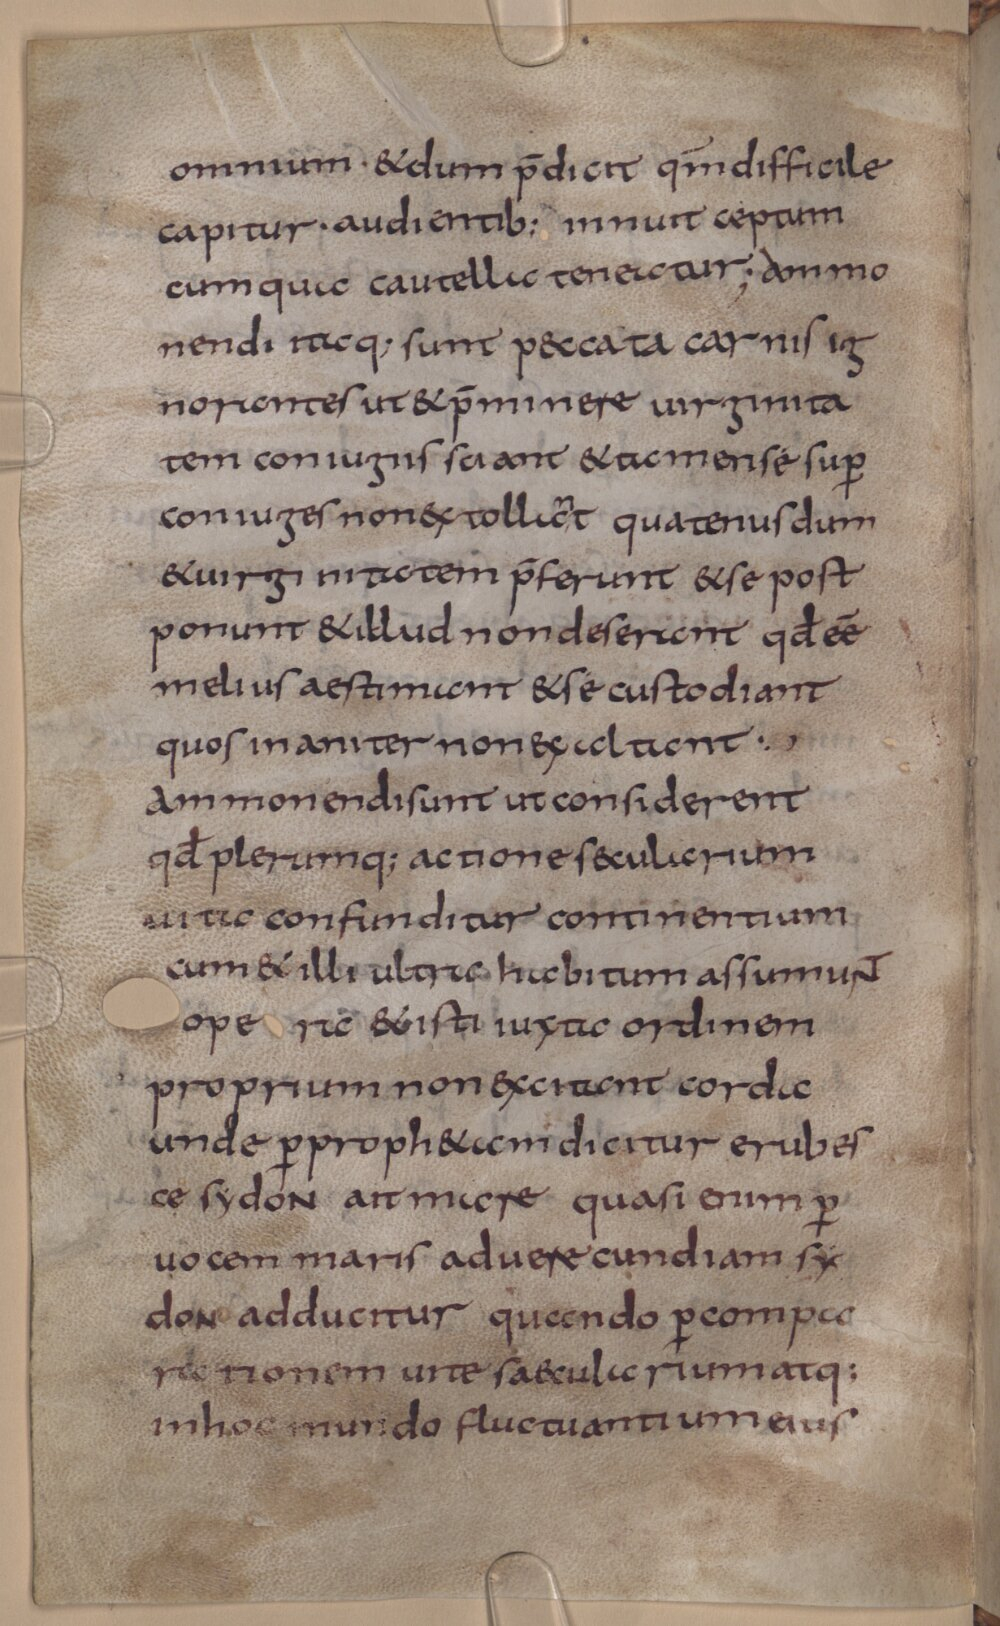 omnium · &dum p̄dicat qm̄ difficile
capitur · audientib; innuit ceptum
cum qua cautella teneatur; Ammo
nendi itaq; sunt p&ccata carnis ig
norantes ut & p̄minere uirginita
tem coniugiis sciant & tamen se sup̲
coniuges non extollant quatenus dum
& uirginitatem p̄ferunt & se post
ponunt & illud non deserant qđ eē
melius aestimant & se custodiant
quos inaniter non exaltant ·,
Ammonendi sunt ut considerent
qđ plerumq; actione s&cularium
uita confunditur continentium
cum & illi ultra habitum assumunt
opera & isti iuxta ordinem
proprium non excitant corda
unde p̲ proph&am dicitur erubes
ce sydoN ait mare quasi enim p̲
uocem maris ad uerecundiam sy
doN adducitur quando p̲ compa
rationem uite sa&cularium atq;
in hoc mundo fluctuantium eius